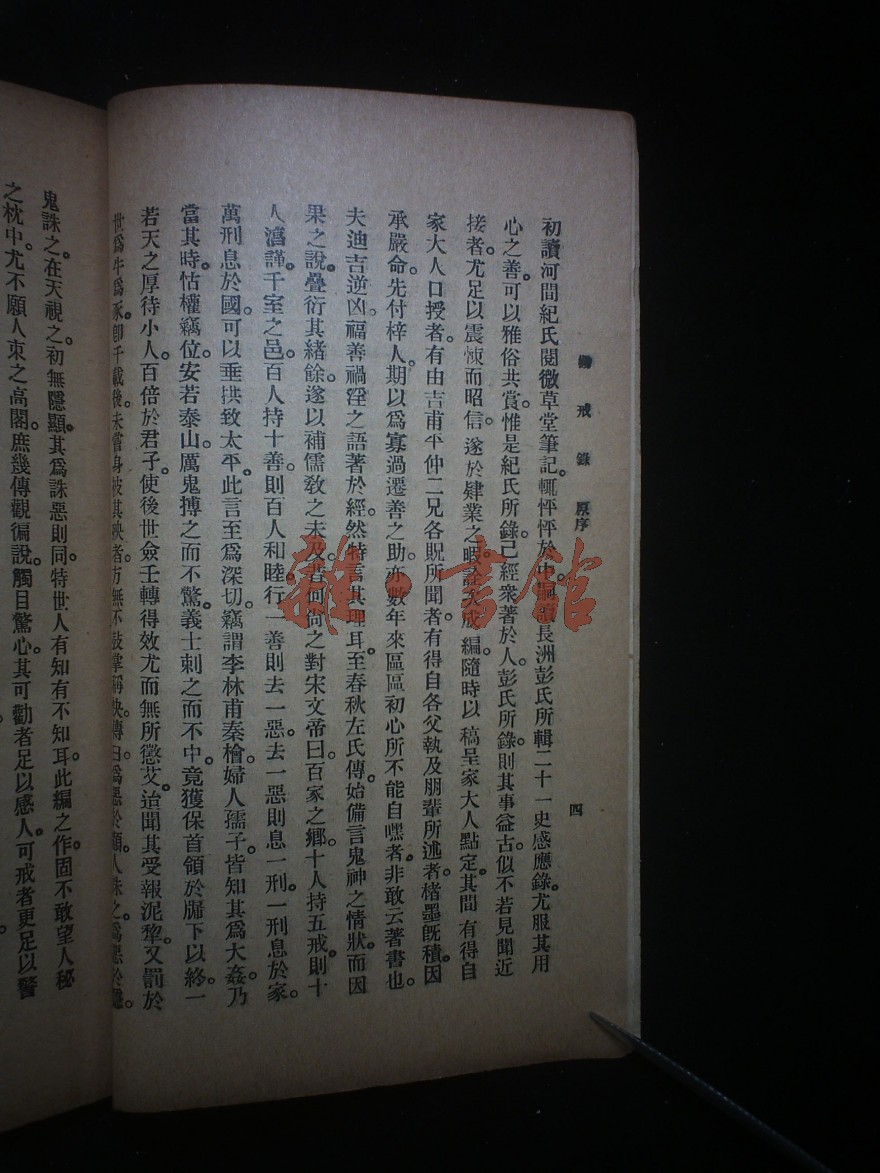 勸戒錄 原序
四
初讀河間紀氏閱微草堂筆記。輒怦怦於中。嗣讀長洲彭氏所輯二十一史感應錄。尤服其用
心之善。可以雅俗共賞。惟是紀氏所錄。已經衆著於人。彭氏所錄。則其事益古。似不若見聞近
接者。尤足以震悚而昭信。遂於肄業之暇。
成編。隨時以稿呈家大人點定。其間有得自
家大人口授者。有由吉甫平仲二兄各貺所聞者。有得自各父執及朋輩所述者。楮墨旣積。因
承嚴命。先付梓人。期以爲寡過遷善之助。亦數年來區區初心所不能自嘿者。非敢云著書也。
夫迪吉逆凶。福善禍淫之語。著於經。然特言其理耳。至春秋左氏傳。始備言鬼神之情狀。而因
果之說。疊衍其緒餘。遂以補儒敎之未及者。何尙之對宋文帝曰。百家之鄕。十人持五戒。則十
人湻謹。千室之邑。百人持十善。則百人和睦。行一善則去一惡。去一惡則息一刑。一刑息於家。
萬刑息於國。可以垂拱致太平。此言至爲深切。竊謂李林甫秦檜。婦人孺子。皆知其爲大姦。乃
當其時。怙權竊位。安若泰山。厲鬼搏之而不驚。義士刺之而不中。竟獲保首領於牖下以終。一
若天之厚待小人。百倍於君子。使後世僉壬轉得效尤而無所懲艾。迨聞其受報泥犂。又罰於
世爲牛爲豕。卽千載後。未嘗身被其殃者。方無不鼓掌稱快。傳曰。爲惡於顯。人誅之。爲惡於隱。
鬼誅之。在天視之。初無隱顯。其爲誅惡則同。特世人有知有不知耳。此編之作。固不敢望人秘
之枕中。尤不願人束之高閣。庶幾傳觀徧說。觸目驚心。其可勸者足以感人。可戒者更足以警
雜·書館